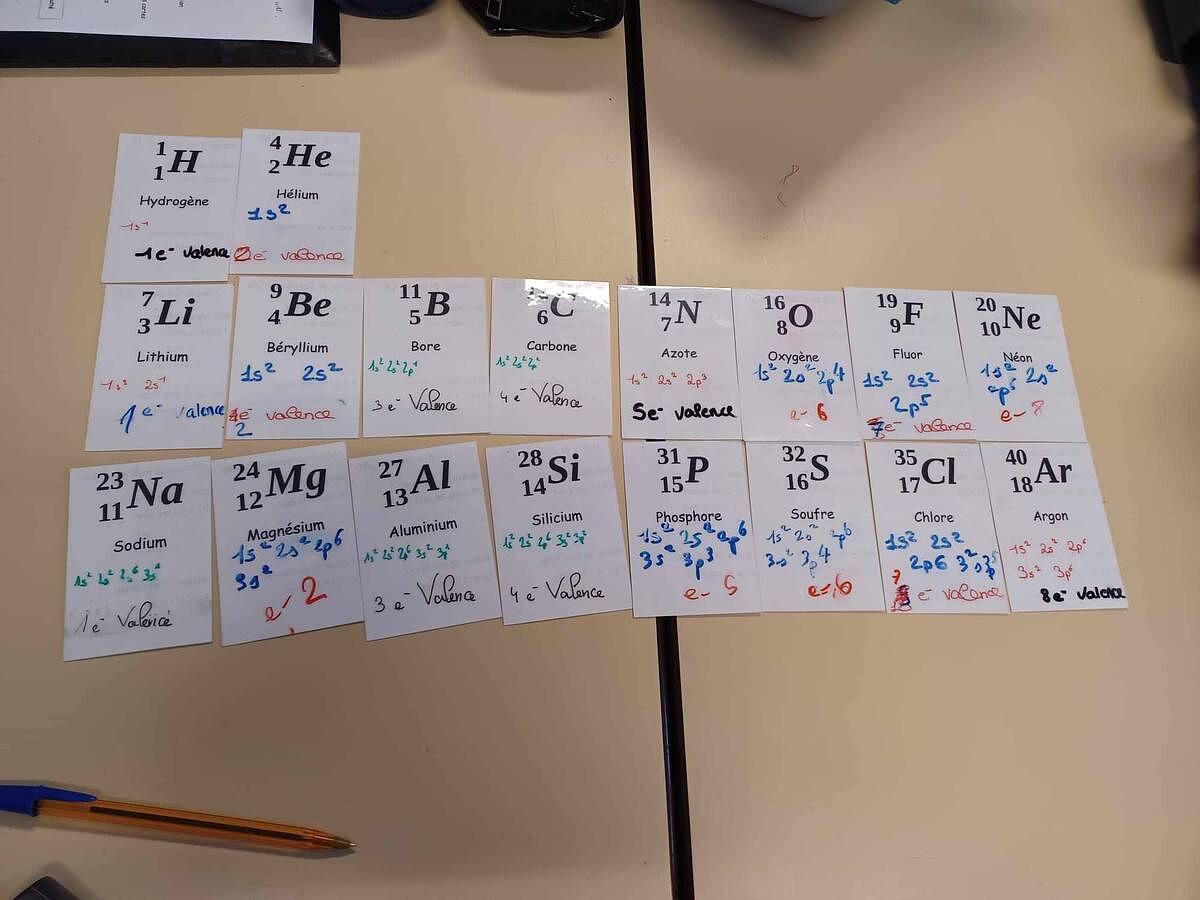 1
1 H
Hydrogène
1s¹
1 e⁻ valence
4
2 He
Hélium
1s²
2e⁻ valence
7
3 Li
Lithium
1s² 2s¹
1 e⁻ valence
9
4 Be
Béryllium
1s² 2s²
e⁻ valence
2
11
5 B
Bore
1s² 2s² 2p¹
3 e⁻ Valence
6 C
Carbone
1s² 2s² 2p²
4 e⁻ Valence
14
7 N
Azote
1s² 2s² 2p³
5e⁻ valence
16
8 O
Oxygène
1s² 2s² 2p⁴
e- 6
19
9 F
Fluor
1s² 2s²
2p⁵
7 e⁻ valence
20
10 Ne
Néon
1s² 2s²
2p⁶
e- 8
23
11 Na
Sodium
1s² 2s² 2s⁶ 3s¹
1 e⁻ Valence
24
12 Mg
Magnésium
1s² 2s² 2p⁶
3s²
e- 2
27
13 Al
Aluminium
1s² 2s² 2p⁶ 3s² 3p¹
3 e⁻ Valence
28
14 Si
Silicium
1s² 2s² 2p⁶ 3s² 3p²
4 e⁻ Valence
31
15 P
Phosphore
1s² 2s² 2p⁶
3s² 3p³
e- 5
32
16 S
Soufre
1s² 2s² 2p⁶
3s² 3p⁴
e- 6
35
17 Cl
Chlore
1s² 2s²
2p6 3s² 3p⁵
7
e⁻ valence
40
18 Ar
Argon
1s² 2s² 2p⁶
3s² 3p⁶
8e⁻ valence